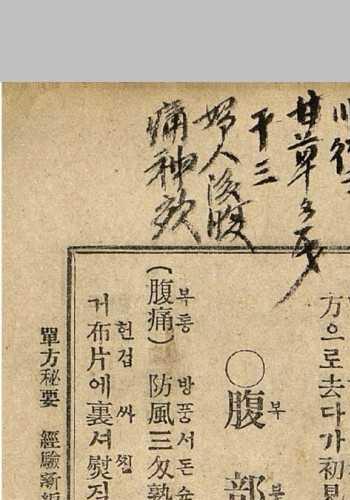 甘草
干三
婦人後腹
痛神效
方으로去다가初見
부
○腹部
부통 방풍서돈
(腹痛) 防風三匁熟
헌겁 싸
거布片에裏셔熨
單方秘要 經驗新編